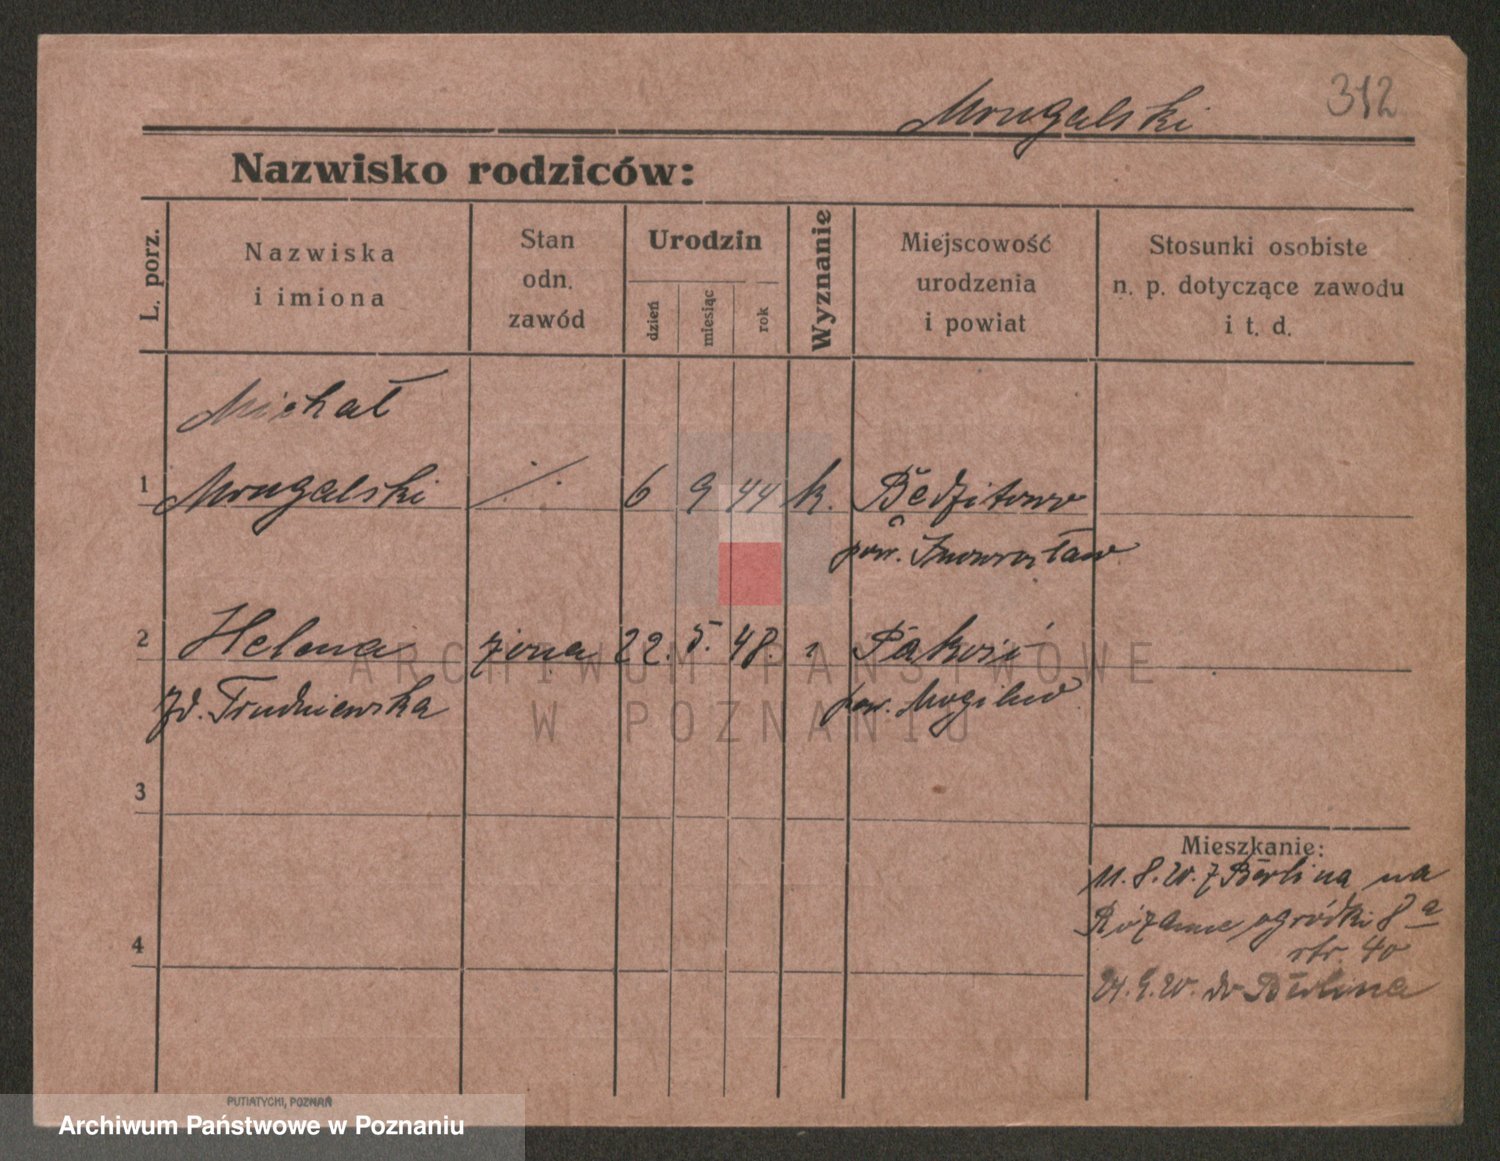 312
Mrugalski
Nazwisko rodziców:
L. porz.
Nazwiska
i imiona
Stan
odn.
zawód
Urodzin
dzień
miesiąc
rok
Wyznanie
Miejscowość
urodzenia
i powiat
Stosunki osobiste
n. p. dotyczące zawodu
i t. d.
Michał
1 Mrugalski ./. 6 9 44 k. Będzitowo
pow. Inowrocław
2 Helena żona 22. 5. 48. Pakość
zd. Trudniewska pow. Mogilno
3
Mieszkanie:
11. 8. 20. z Berlina na
Różanne ogródki 8a
str. 40
4
24. 9. 20. do Berlina
ARCHIWUM PAŃSTWOWE
W POZNANIU
PUTIATYCKI, POZNAŃ
Archiwum Państwowe w Poznaniu